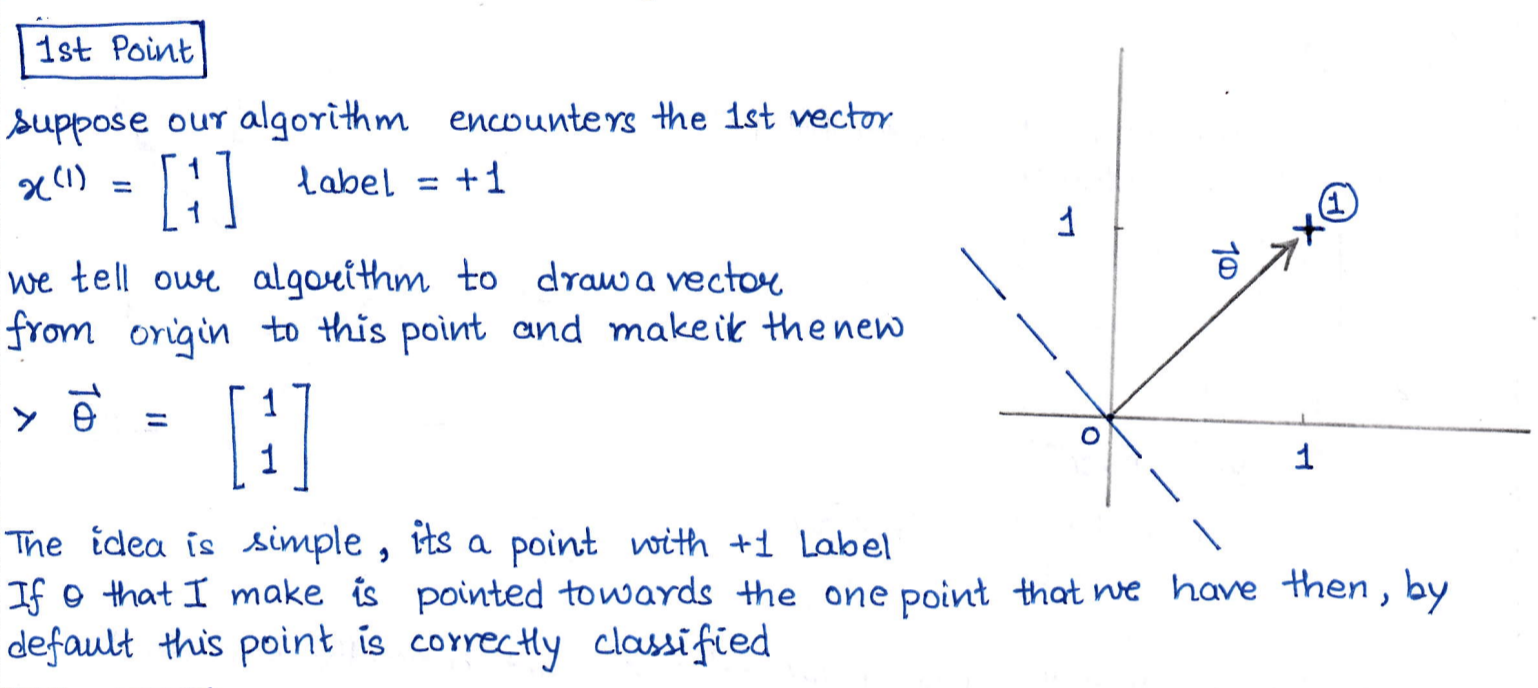 1st Point
suppose our algorithm encounters the 1st vector
x⁽¹⁾ = [1 1] label = +1
we tell our algorithm to draw a vector
from origin to this point and make it the new
> θ⃗ = [1 1]
The idea is simple, its a point with +1 Label
If θ that I make is pointed towards the one point that we have then, by
default this point is correctly classified
1
θ⃗
①
0
1